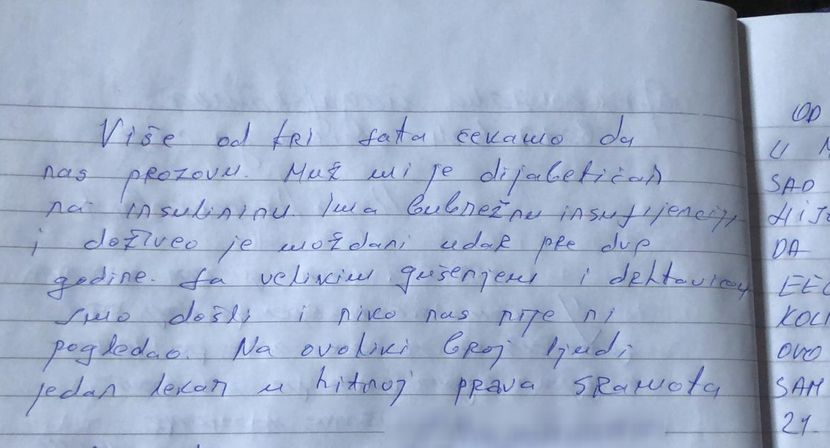 Više od tri sata čekamo da
nas prozovu. Muž mi je dijabetičar
na insulinu. Ima bubrežnu insuficijenciju
i doživeo je moždani udar pre dve
godine. Sa velikim gušenjem i drhtavicom
smo došli i niko nas nije ni
pogledao. Na ovoliki broj ljudi
jedan lekar u hitnoj prava sramota
OD
U
SAD
DA
KOLI
OVO
SAM
21.